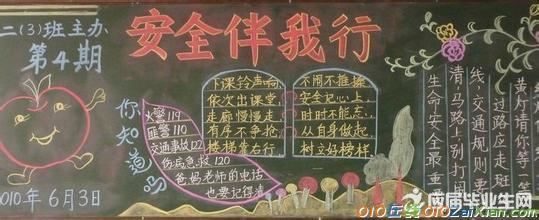 二(3)班主办
第4期
安全伴我行
你知道吗
火警119
匪警110
交通事故122
伤病急救120
爸妈老师的电话
也要记得清
下课铃声响
依次出课堂
走廊慢慢走
有序不争抢
楼梯靠右行
不闹不推搡
安全记心上
时时不能忘
从自身做起
树立好榜样
黄灯请你等一等
过路应走斑
线,交通规则要
清,马路上别打
生命安全最重要
2010年6月3日
应届毕业生网
010在线 010zaixian.com